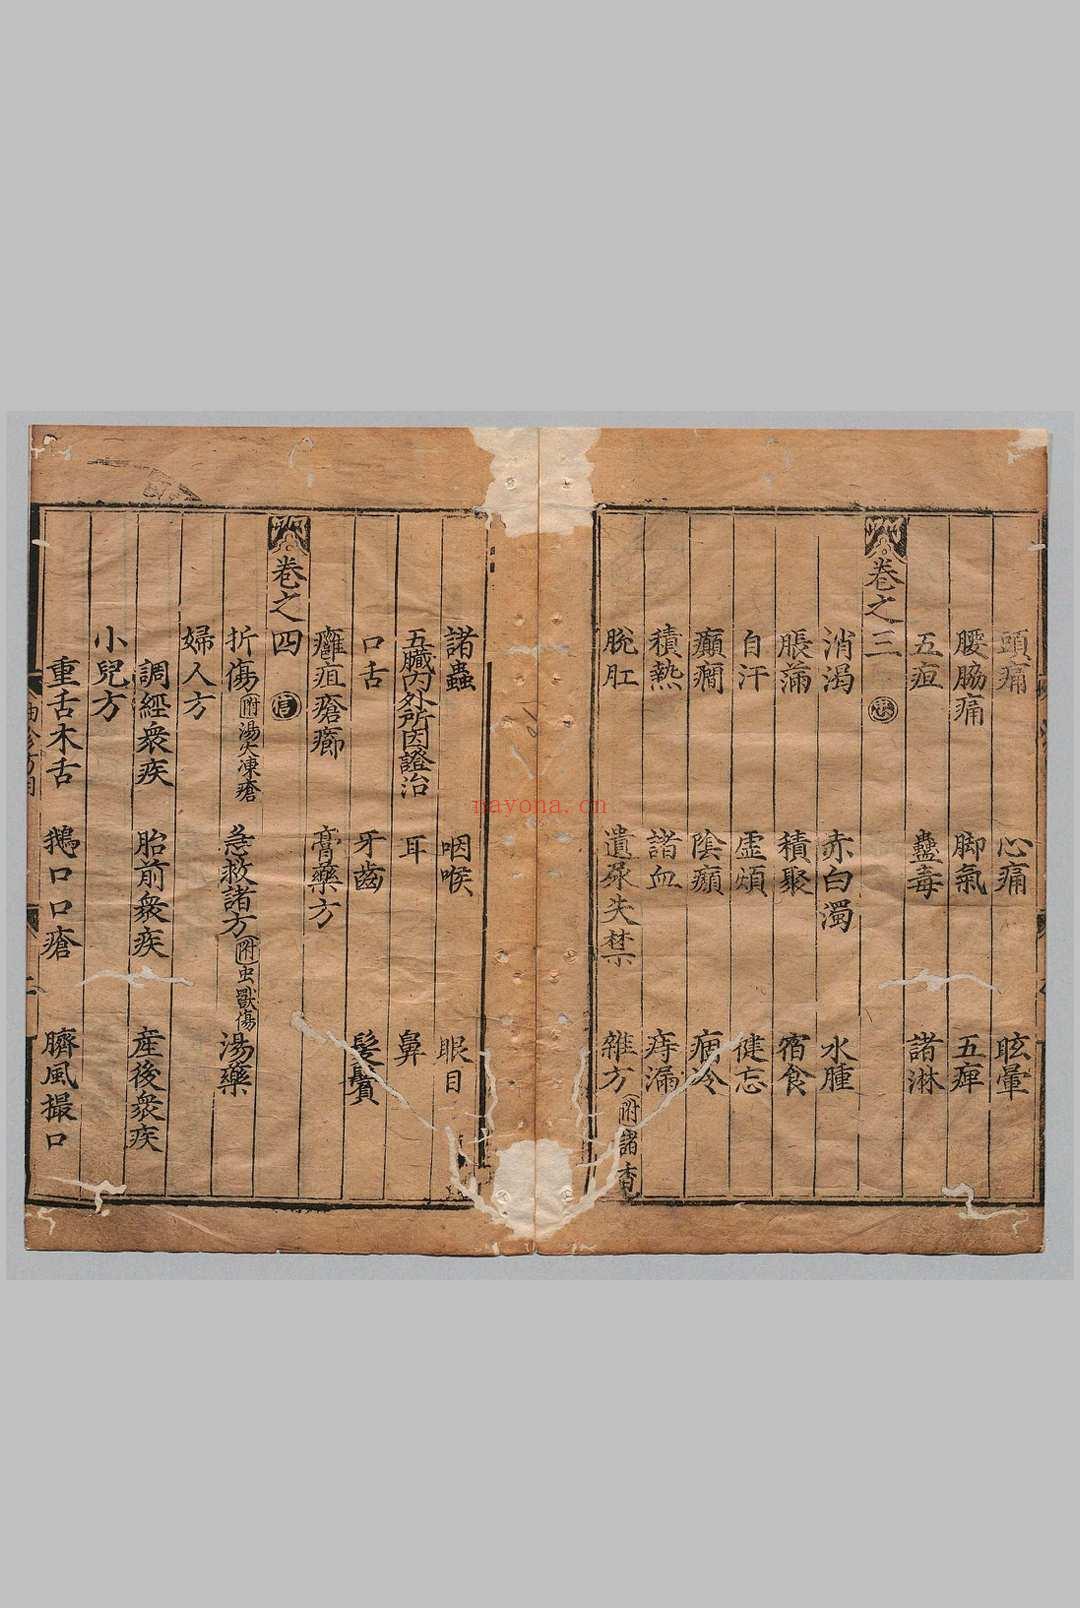 頭痛 心痛 眩暈
腰脇痛 脚氣 五痺
五疸 蠱毒 諸淋
卷之三 忠
消渴 赤白濁 水腫
脹滿 積聚 宿食
自汗 虛煩 健忘
癲癇 陰㿗 痼冷
積熱 諸血 痔漏
脫肛 遺尿失禁 雜方 附諸香
諸蟲 咽喉 眼目
五臟内外所因證治 耳 鼻
口舌 牙齒 髮鬢
癰疽瘡癤 膏藥方
卷之四 信
折傷 附湯火凍瘡 急救諸方 附虫獸傷 湯藥
婦人方
調經衆疾 胎前衆疾 產後衆疾
小兒方
重舌木舌 鵝口口瘡 臍風撮口
nayona.cn